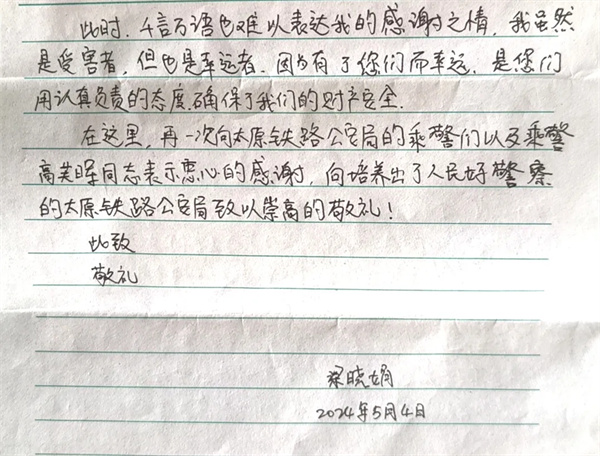 此时,千言万语也难以表达我的感谢之情,我虽然
是受害者,但也是幸远者.因为有了您们而幸远.是您们
用认真负责的态度.确保了我们的财产安全.
在这里,再一次向太原铁路公安局的乘警们以及乘警
高美晖同志表示衷心的感谢,向培养出了人民好警察
的太原铁路公安局致以崇高的敬礼!
此致
敬礼
梁晓娟
2024年5月4日